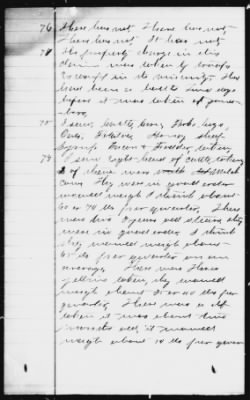 76 There has not, There has not,
There has not, It has not,
77 The property charge in this
claim was taken by troops
in the vicinity. There
had been a battle two days
before it was taken at
boro,
78 I seen, cattle,
Oats, Fodder, Honey, Sheep
Syrup, Bacon & Fodder, taken,
79 I seen eight head of cattle taken,
of them was milk
cows They were in good order
would weigh I think about
60 or 70 lbs per quarter, There
was two 2 years old steers they
were in good order, I think
they would weigh about
lbs per quarter on an
average, There was three
yearlins taken, they would
weigh about 35 or 40 lbs per
quarter, There was a calf
taken it was about two
months old, it would
weigh about 10 lbs per quarter